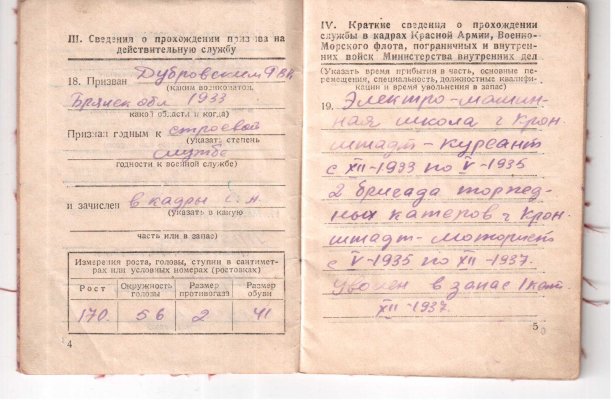 III. Сведения о прохождении призыва на
действительную службу
18. Призван Дубровским РВК
(каким военкоматом,
Брянск обл 1933
какой области и когда)
Признан годным к строевой
(указать степень
службе
годности к военной службе)
и зачислен в кадры С. А.
(указать в какую
часть или в запас)
Измерения роста, головы, ступни в сантимет-
рах или условных номерах (ростовках)
Рост Окружность головы Размер противогаза Размер обуви
170 56 2 41
4
IV. Краткие сведения о прохождении
службы в кадрах Красной Армии, Военно-
Морского флота, пограничных и внутрен-
них войск Министерства внутренних дел
(Указать время прибытия в часть, основные пе-
ремещения, специальность, должностные квалифи-
кации и время увольнения в запас)
19. Электро-машин-
ная школа г Крон-
штадт-курсант
с XII-1933 по V-1935
2 бригада торпед-
ных катеров г Крон-
штадт-моторист
с V-1935 по XII-1937.
Уволен в запас 1 кат.
XII-1937.
5